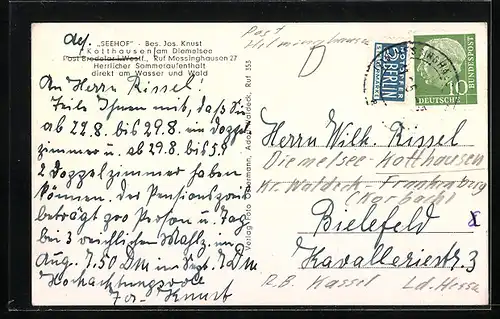 Abs.
„SEEHOF" - Bes. Jos. Knust
Kotthausen am Diemelsee
Post Bredelar i. Westf., Ruf Messinghausen 27
Herrlicher Sommeraufenthalt
direkt am Wasser und Wald
An Herrn Rissel!
Teile Ihnen mit, daß Sie
ab 22.8. bis 29.8. ein Doppel
zimmer u. ab 29.8. bis 5.9
2 Doppelzimmer haben
können. Der Pensionspreis
beträgt pro Person u. Tag
bei 3 reichlichen Mahlz. im
Aug. 7.50 Dm im Sept. 7 Dm
Hochachtungsvoll
Jos. Knust
Verlag Foto Ostermann, Adorf/Waldeck, Ruf 153
Post
Helminghausen
NOTOPFER
2 BERLIN
STEUERMARKE
DEUTSCHE
BUNDESPOST
10
Herrn Wilh. Rissel
Diemelsee-Kotthausen
Kr. Waldeck-Frankenberg
(Korbach)
Bielefeld
Kavalleriestr. 3
R.B. Kassel Ld. Hessen